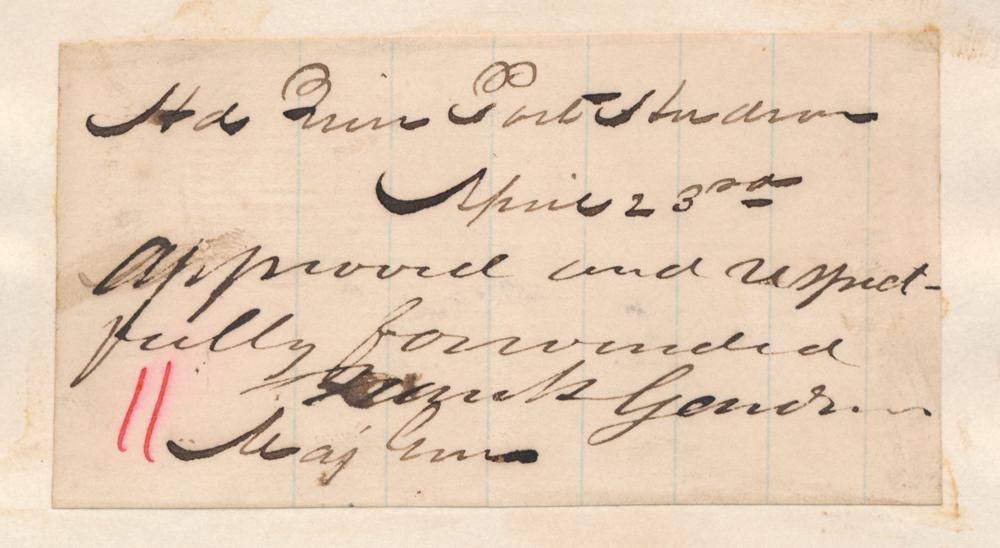 Hd Qrs Port Hudson
April 23rd
Approved and respect-
fully forwarded
Frank Gardner
Maj Gen
11